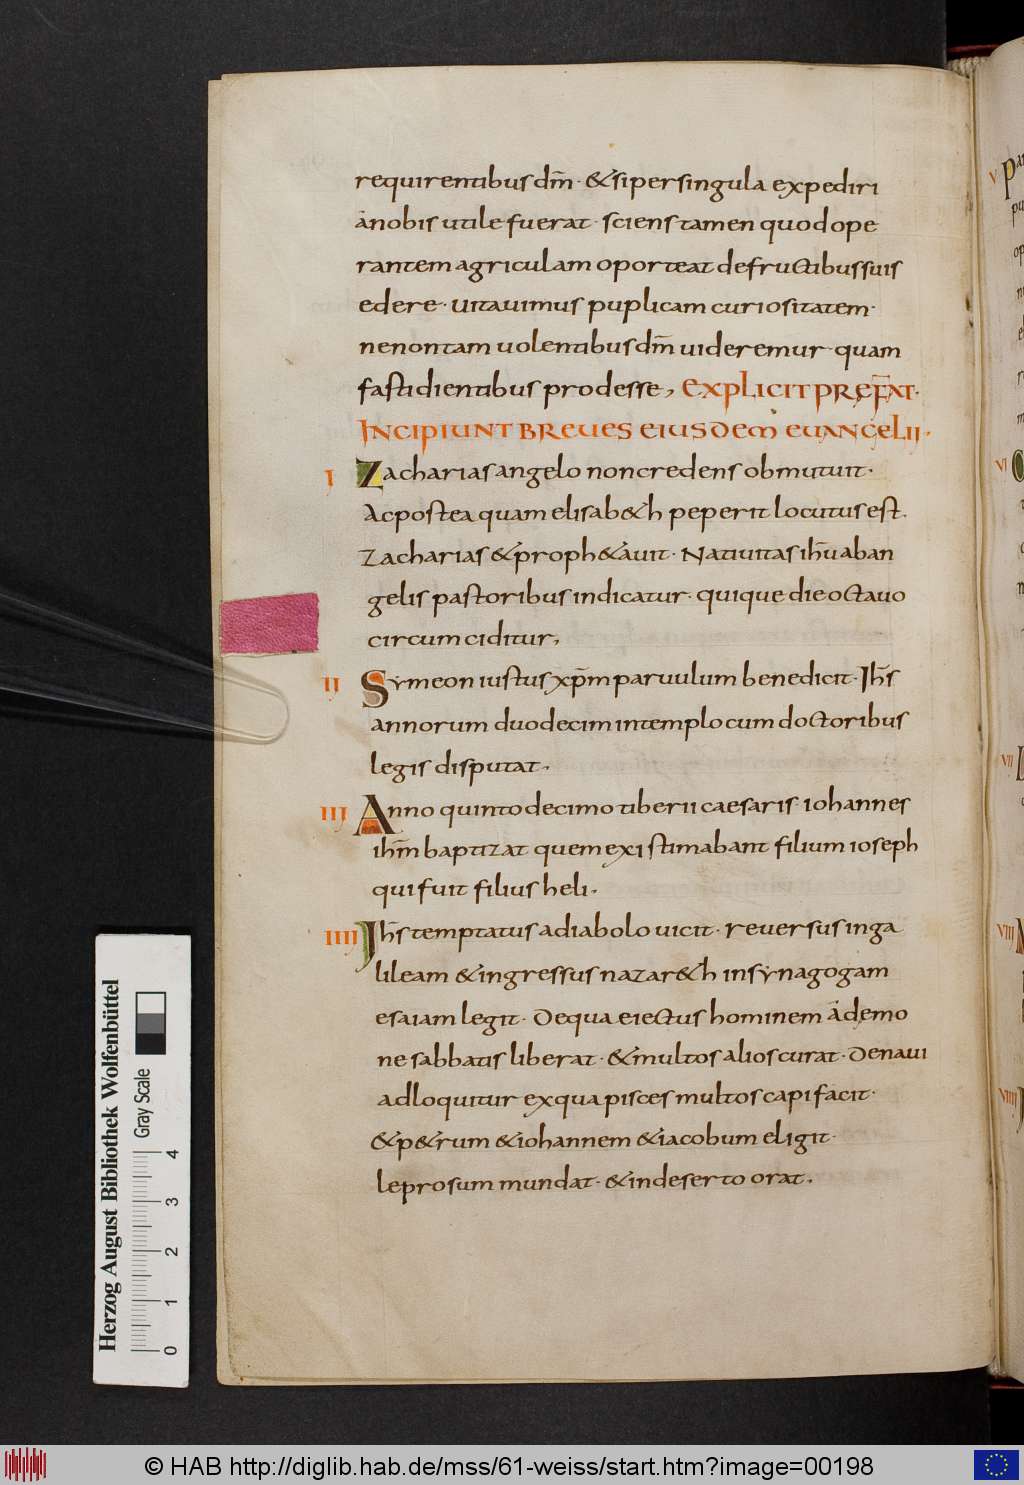 requirentibus dm̄· & si per singula expediri
anobis utile fuerat· sciens tamen quod ope
rantem agriculam oporteat de fructibus suis
edere· uitauimus puplicam curiositatem·
ne non tam uolentibus dm̄ uideremur quam
fastidientibus prodesse, EXPLICIT PREFAT·
INCIPIUNT BREUES EIUSDEM EUANGELII·
I Zacharias angelo non credens obmutuit·
Ac postea quam elisab&h peperit locutus est.
Zacharias & proph&auit· Natiuitas ih̄u aban
gelis pastoribus indicatur· quique die octauo
circumciditur,
II Symeon iustus xp̄m paruulum benedicit· Ih̄s
annorum duodecim in templo cum doctoribus
legis disputat·
III Anno quinto decimo tiberii caesaris· iohannes
ih̄m baptizat quem existimabant filium ioseph
qui fuit filius heli·
IIII Ih̄s temptatus a diabolo uicit· reuersus inga
lileam & ingressus nazar&h in synagogam
esaiam legit· De qua eiectus hominem a demo
ne sabbatis liberat· & multos alios curat· De naui
adloquitur ex qua pisces multos capi facit·
& p&rum & iohannem & iacobum eligit·
leprosum mundat· & in deserto orat.
V
VI
VII
VIII
VIIII
Herzog August Bibliothek Wolfenbüttel
Gray Scale
0 1 2 3 4
© HAB http://diglib.hab.de/mss/61-weiss/start.htm?image=00198